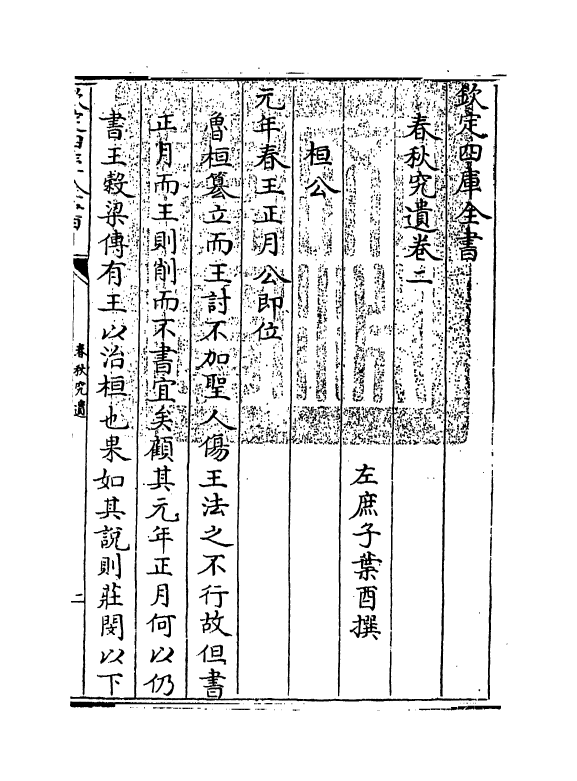 欽定四庫全書
春秋究遺卷二
左庶子葉酉撰
桓公
元年春王正月公即位
魯桓簒立而王討不加聖人傷王法之不行故但書
正月而王則削而不書宜矣顧其元年正月何以仍
書王榖梁傳有王以治桓也果如其說則莊閔以下
欽定四庫全書
春秋究遺
二